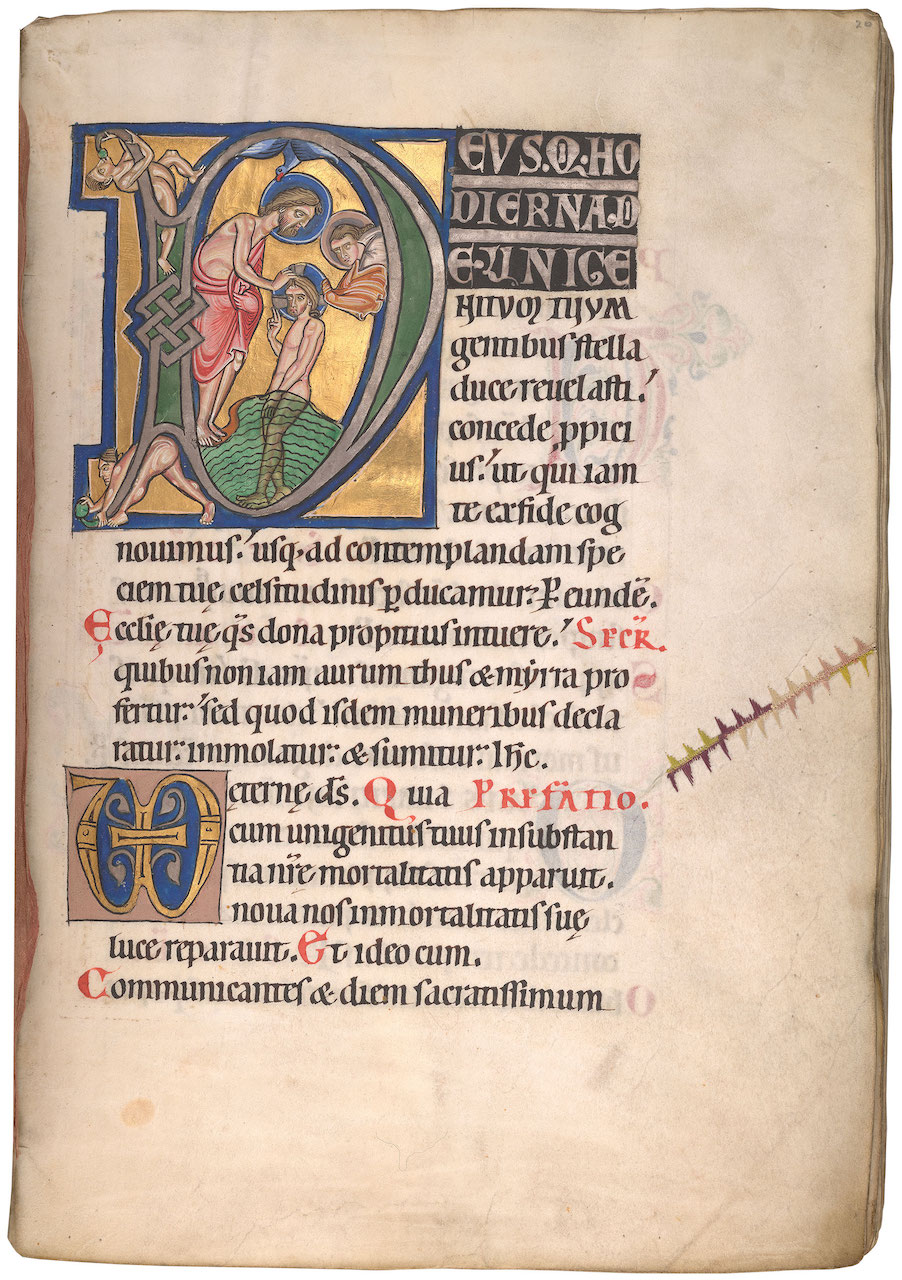 20
DEUS·Q·HO
DIERNA·D
E·UNIGE
NITUM TUUM
gentibus stella
duce reuelasti.'
concede ꝓpici
us.' ut qui iam
te ex fide cog
nouimus.' usq; ad contemplandam spe
ciem tuę celsitudinis ꝑducamur. P eundē.
Ecclesię tuę q̄s dona propitius intuere.' SECR̄.
quibus non iam aurum thus & myrra pro
fertur.' sed quod isdem muneribus decla
ratur.' immolatur.' & sumitur.' Ihc.
VD eternę d̄s. Quia PREFATIO.
cum unigenitus tuus in substan
tia nr̄e mortalitatis apparuit.
noua nos inmortalitatis suę
luce reparauit. Et ideo cum.
Communicantes & diem sacratissimum